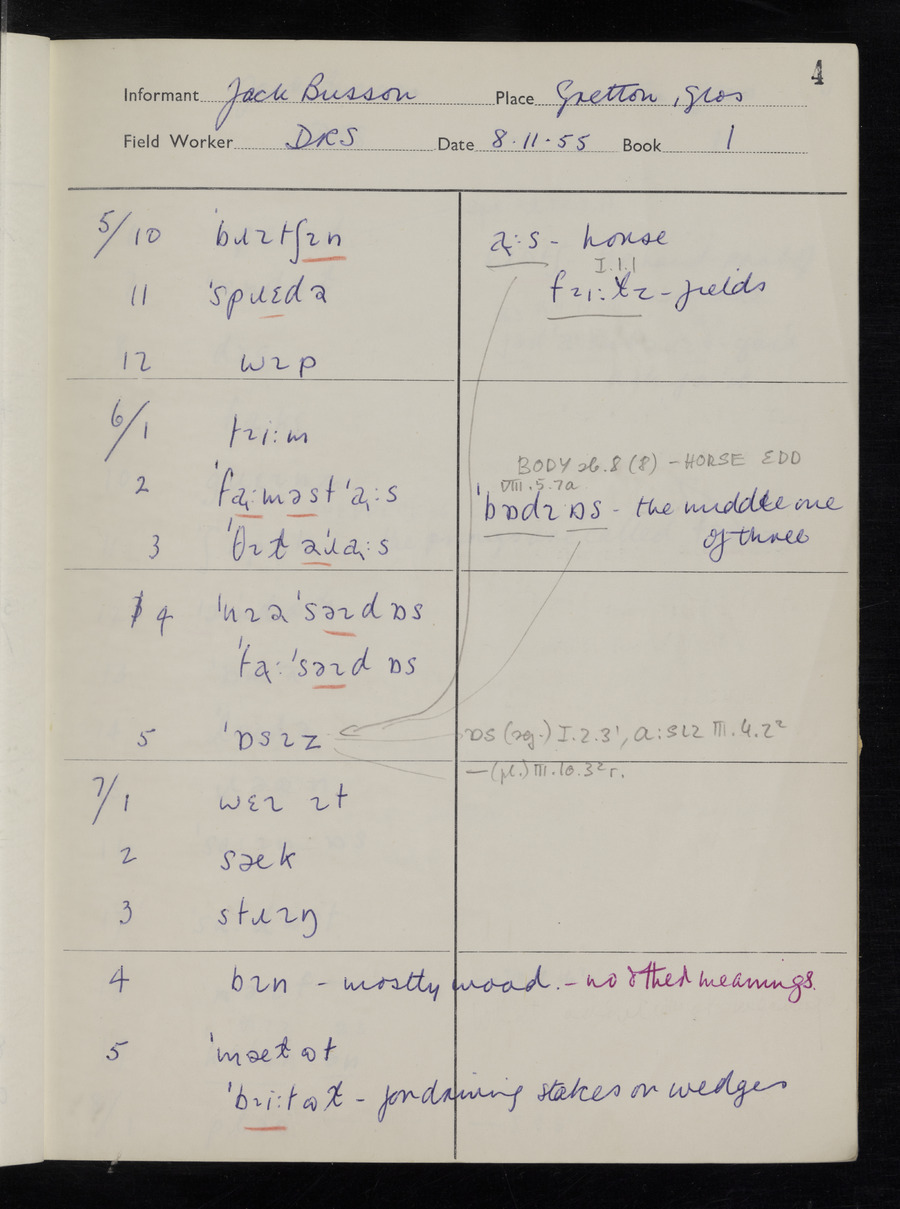 4
Informant Jack Busson Place Gretton, Glos
Field Worker DRS Date 8.11.55 Book 1
5/10 ˈbɹɪtʃɪn
11 ˈspɹɛdə
12 wɪp
6/1 tɪi:m
2
3
4 ˈnɪə ˈsəɪd ɒs
ˈsəɪd ɒs
5 ˈɒsɪz
7/1 wɛɪ ɪt
2 sæk
3 stɹɪŋ
4 bɪn - mostly wood. - no other meanings.
5
- for driving stakes or wedges
- house
I.1.1
- fields
BODY sb. 8 (8) - HORSE EDD
VIII.5.7a
ˈbɒdɪ ɒs - the middle one
of three
ɒs (sg.) I.2.3¹, III.4.2²
- (pl.) III.10.3² r.